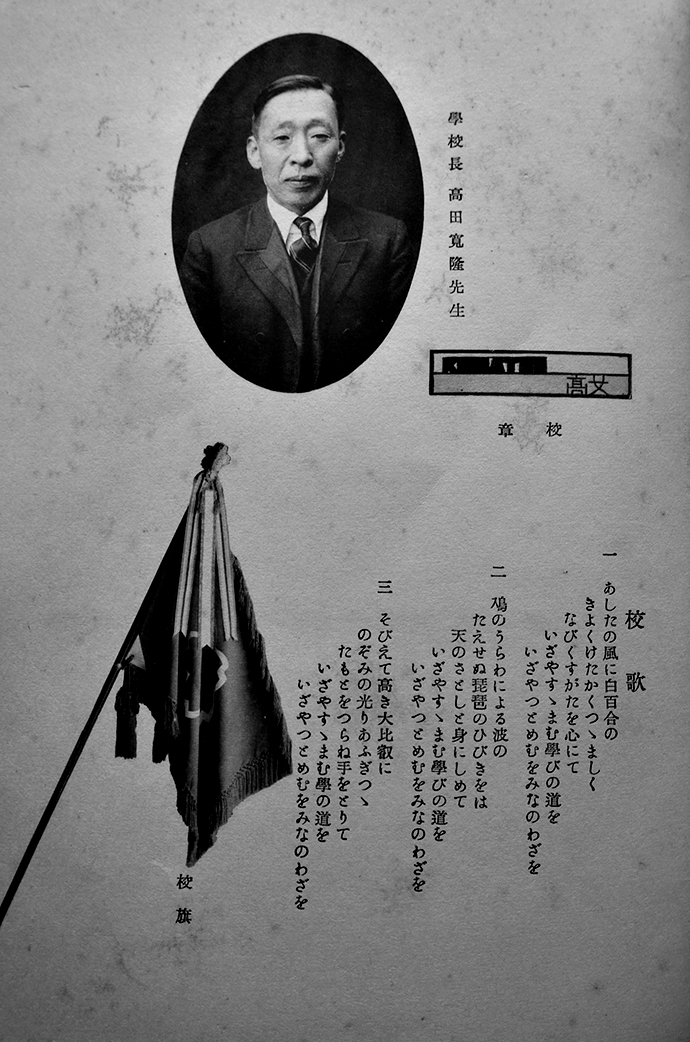 學校長 高田寬隆先生
高女
校章
校歌
一 あしたの風に白百合の
きよくけたかくつゝましく
なびくすがたを心にて
いざやすゝまむ學びの道を
いざやつとめむをみなのわざを
二 鳰のうらわによる波の
たえせぬ琵琶のひびきをは
天のさとしと身にしめて
いざやすゝまむ學びの道を
いざやつとめむをみなのわざを
三 そびえて高き大比叡に
のぞみの光りあふぎつゝ
たもとをつらね手をとりて
いざやすゝまむ學の道を
いざやつとめむをみなのわざを
校旗